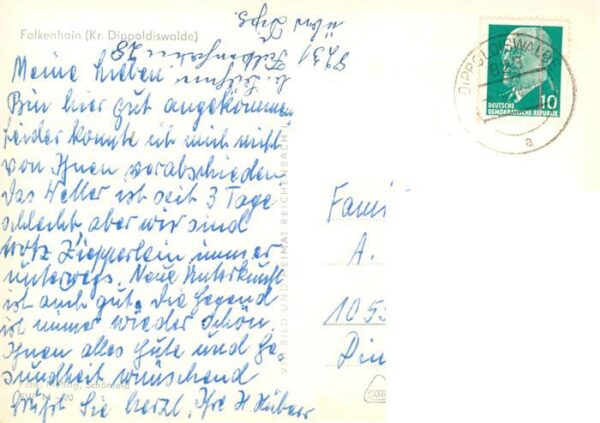 Falkenhain (Kr. Dippoldiswalde)
über Dipp.
8231 Falkenhain 28
Meine Lieben
Bin hier gut angekommen
Leider konnte ich mich nicht
von Ihnen verabschieden
Das Wetter ist seit 3 Tage
schlecht, aber wir sind
trotz Zipperlein immer
unterwegs. Neue Unterkunft
ist auch gut. Die Gegend
ist immer wieder schön.
Ihnen alles Gute und Ge-
sundheit wünschend
Grüßt Sie herzl. Ihre H Hübner
VEB BILD UND HEIMAT REICHENBACH
Schönfeld
DIPPOLDISWALDE
a
10
DEUTSCHE
DEMOKRATISCHE REPUBLIK
Fami
A.
1055
Din